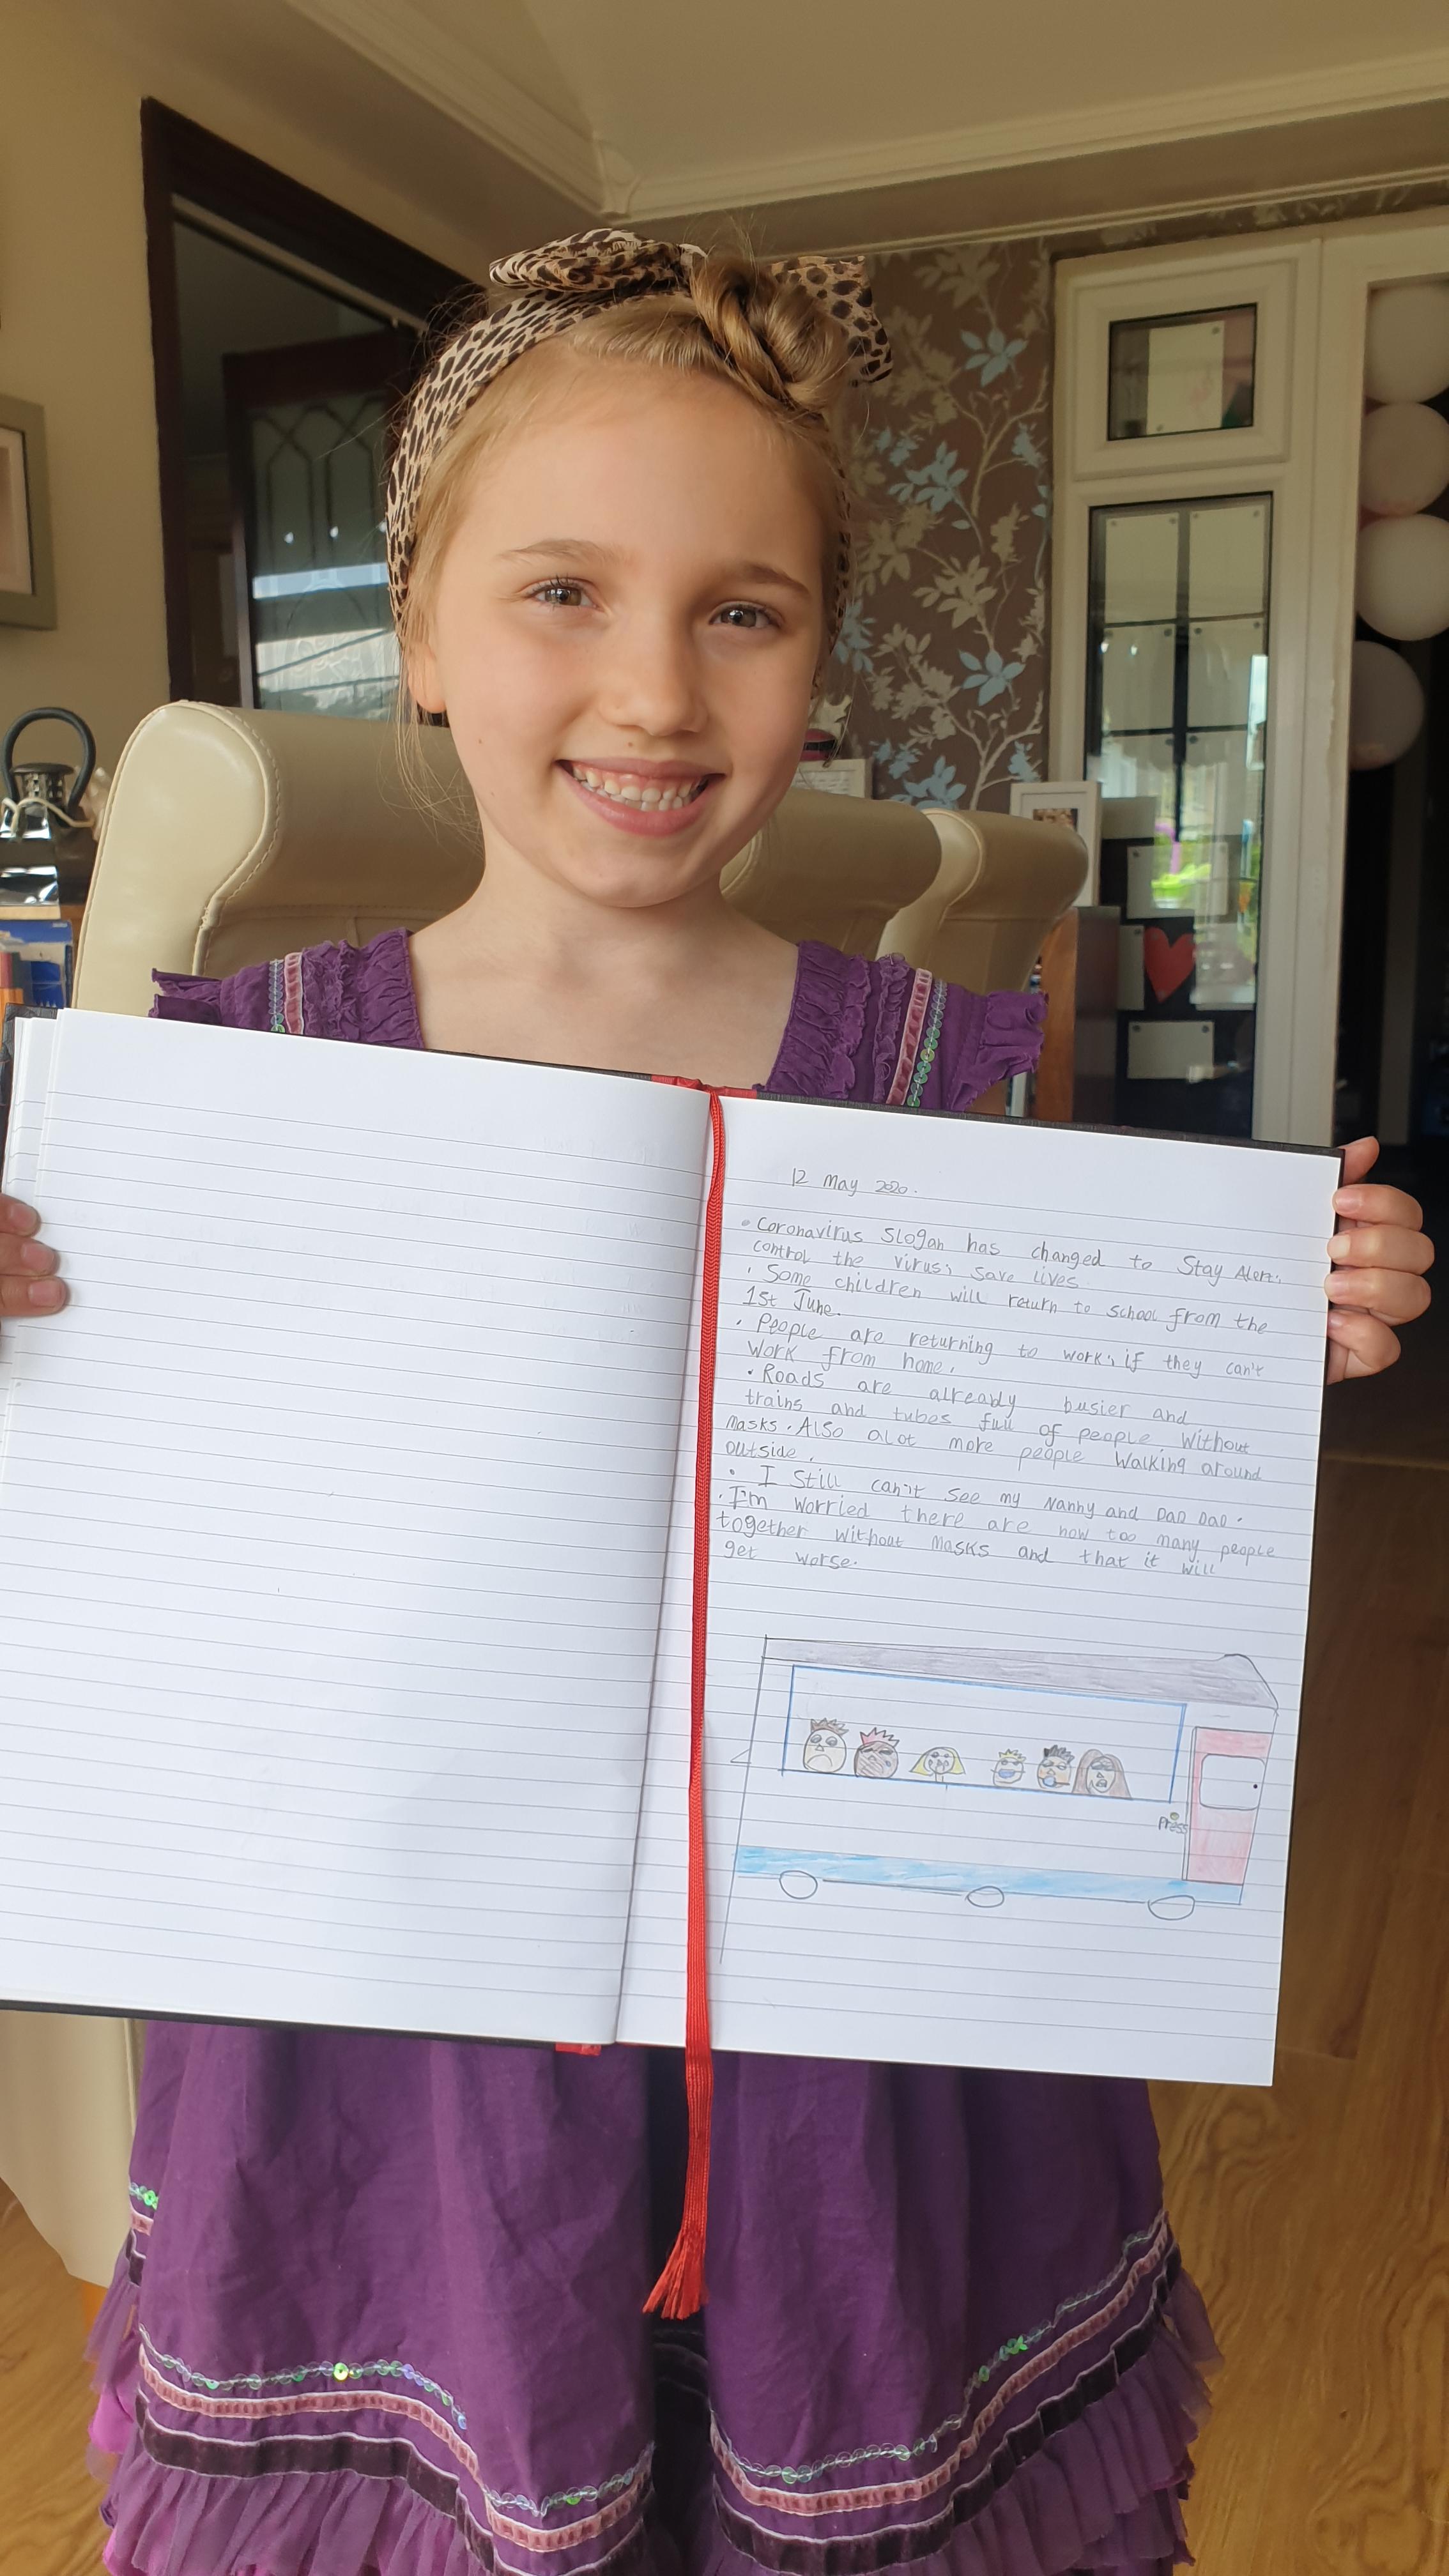 12 May 2020.
• Coronavirus Slogan has changed to Stay Alert,
control the virus, save lives
• Some children will return to school from the
1st June.
• People are returning to work, if they can't
work from home.
• Roads are already busier and
trains and tubes full of people without
masks. Also alot more people walking around
outside.
• I still can't see my Nanny and Dad Dad.
• I'm worried there are now too many people
together without masks and that it will
get worse.
Press